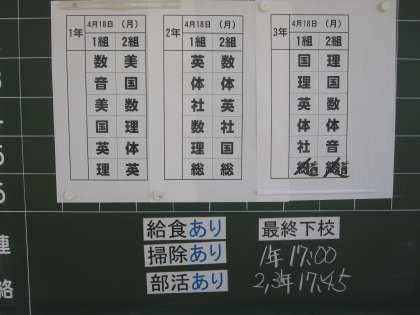 1年
4月18日 (月)
1組 2組
数 美
音 国
美 数
国 理
英 体
理 英
2年
4月18日 (月)
1組 2組
英 数
体 体
社 英
数 社
理 国
総 総
3年
4月18日 (月)
1組 2組
国 理
理 国
英 数
体 体
社 音
道 道
5
6
連
絡
給食あり
掃除あり
部活あり
最終下校
1年 17:00
2,3年 17:45